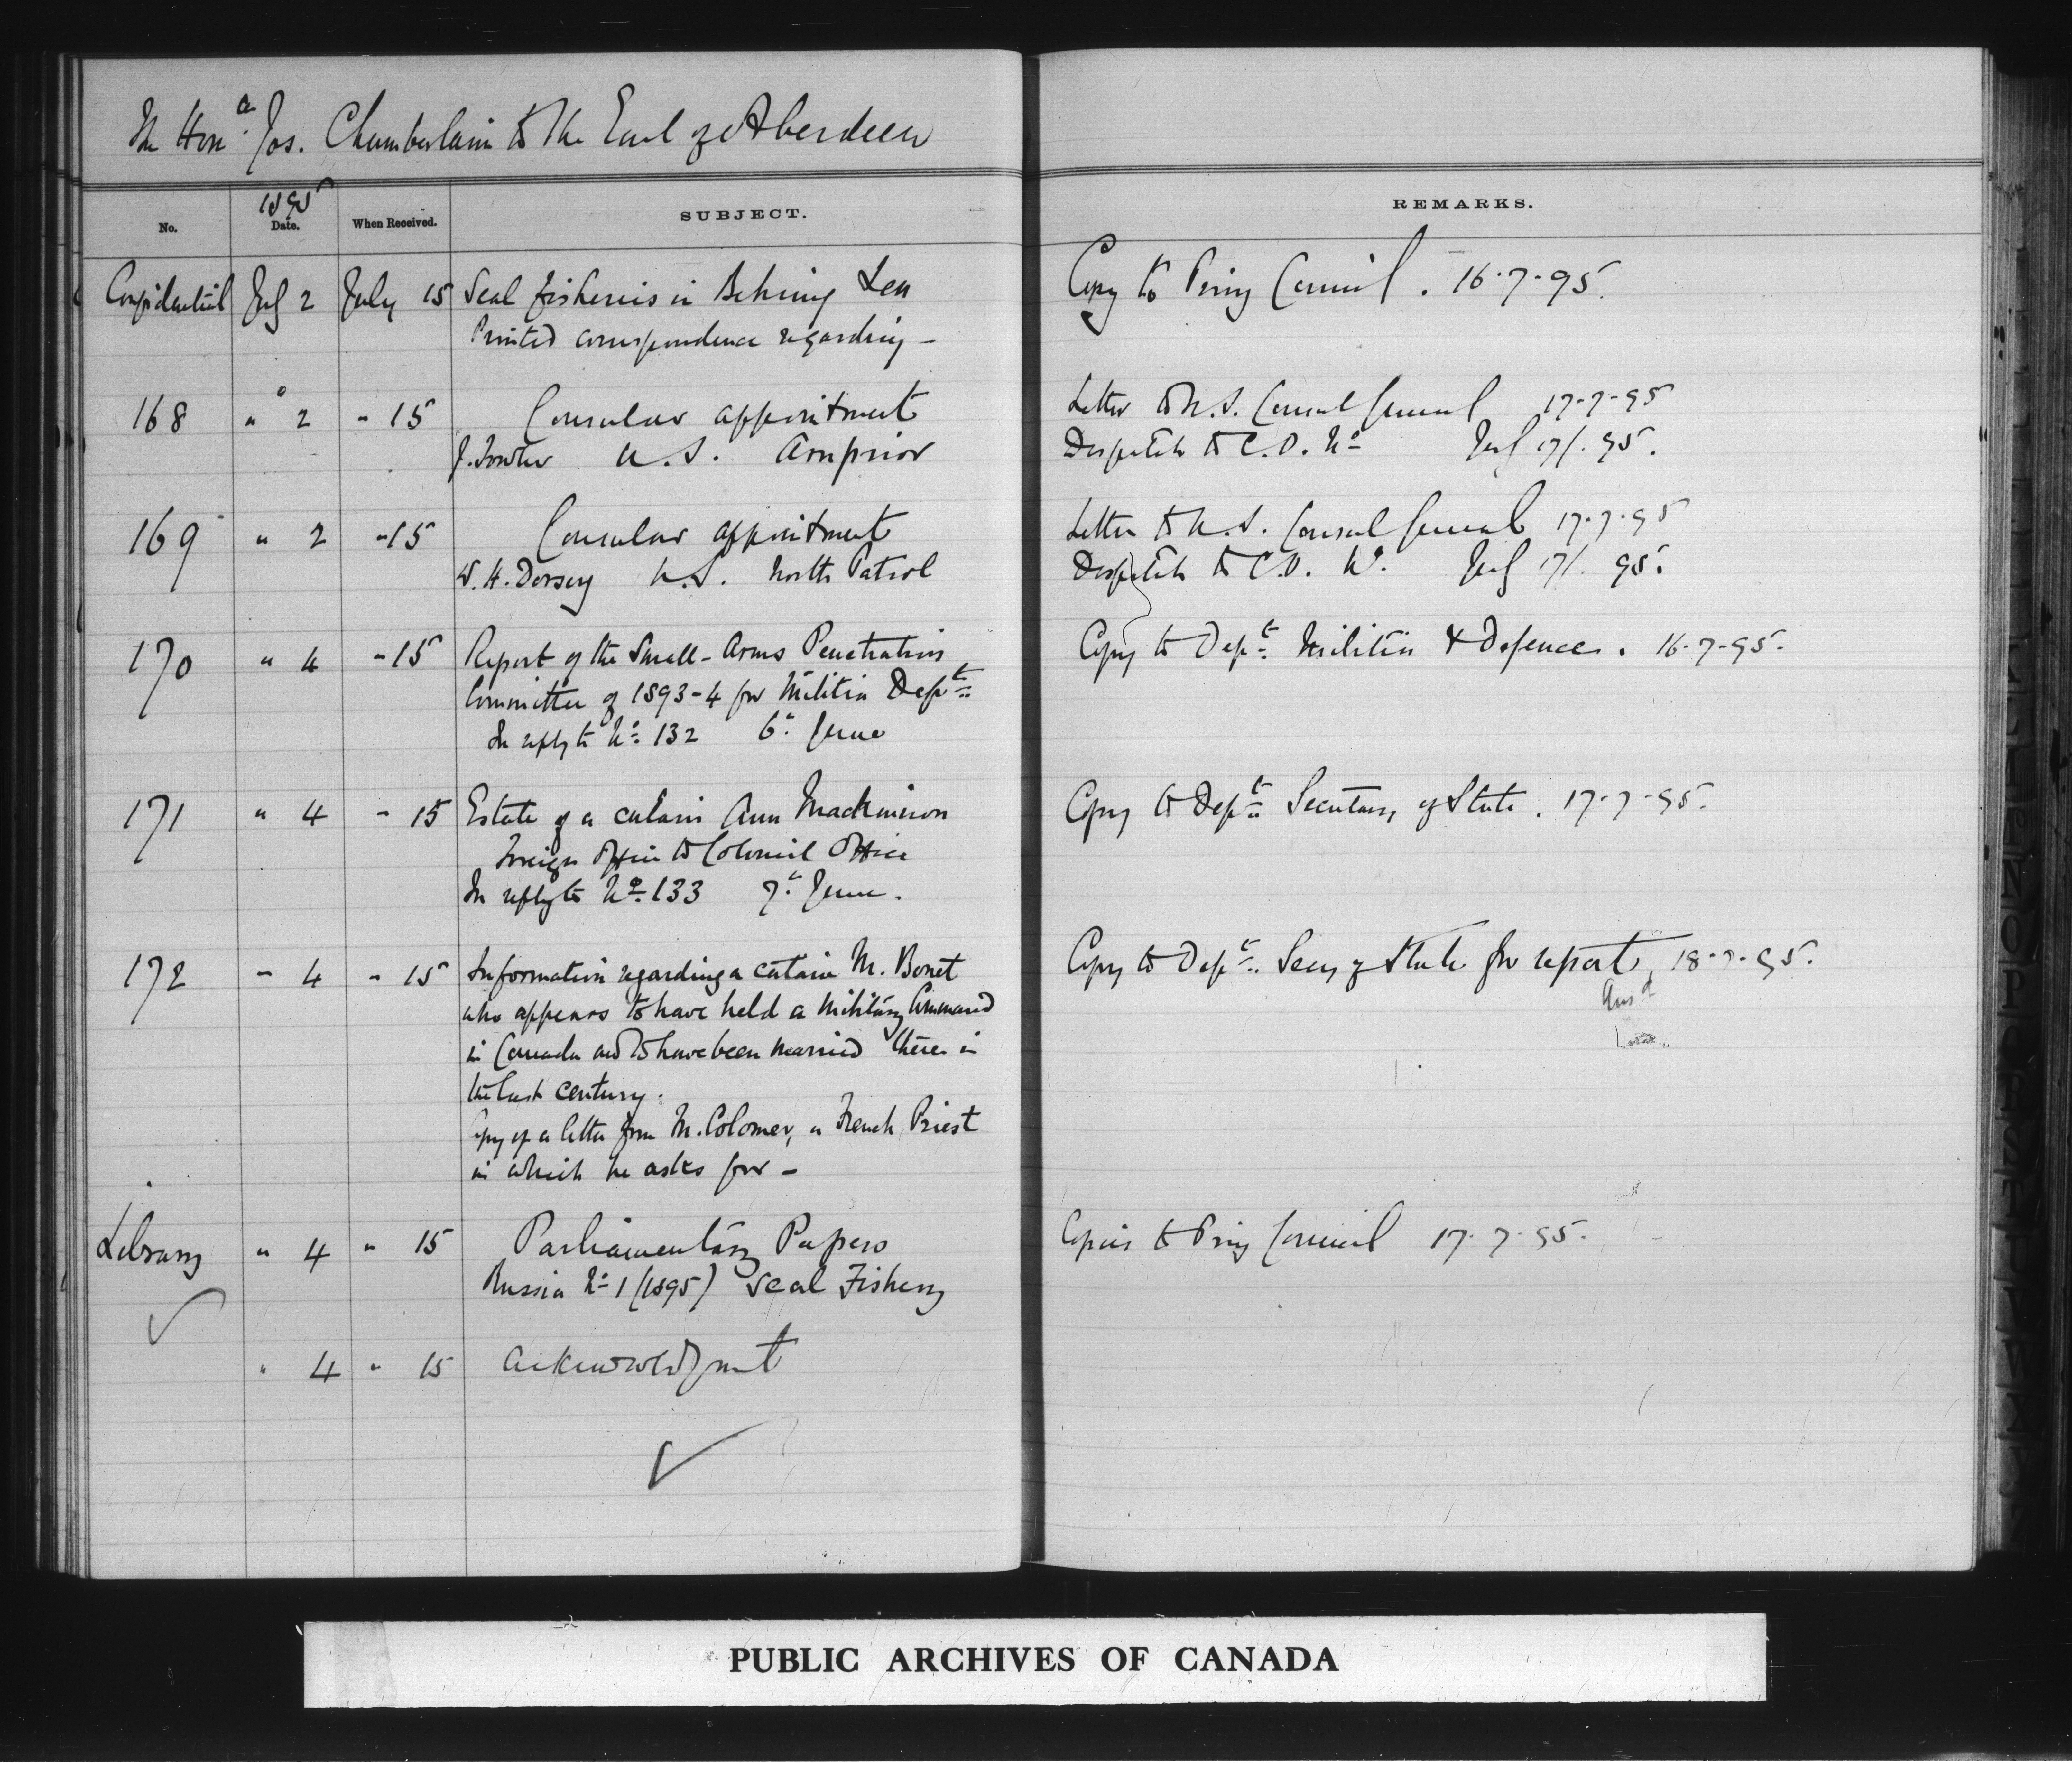 The Hon^a. Jos. Chamberlain to The Earl of Aberdeen
No. 1895 Date. When Received. SUBJECT. REMARKS.
Confidential July 2 July 15 Seal fisheries in Behring Sea Copy to Privy Council. 16-7-95.
Printed correspondence regarding -
168 " 2 - 15 Consular appointment Letter to U.S. Consul General 17-7-95
J. Fowler U.S. Arnprior Despatch to C.O. No July 17/. 95.
169 " 2 - 15 Consular appointment Letter to U.S. Consul General 17-7-95
W. H. Dorsey U.S. North Patrol Despatch to C.O. No. July 17/. 95.
170 " 4 - 15 Report of the Small-Arms Penetration Copy to Dept. Militia & Defence. 16-7-95.
Committee of 1893-4 for Militia Dept.
In reply to No. 132 6" June
171 " 4 - 15 Estate of a certain Ann Mackinnon Copy to Dept. Secretary of State. 17-7-95.
Foreign Office to Colonial Office
In reply to No. 133 7" June.
172 - 4 - 15 Information regarding a certain M. Bonet Copy to Dept. Secy of State for report, 18-7-95.
who appears to have held a Military Command Ansd
in Canada and to have been married there in
the last century.
Copy of a letter from M. Colomer, a French Priest
in which he asks for -
Library " 4 " 15 Parliamentary Papers Copies to Privy Council 17-7-95.
Russia No 1 (1895) Seal Fishery
" 4 " 15 Acknowledgment
PUBLIC ARCHIVES OF CANADA